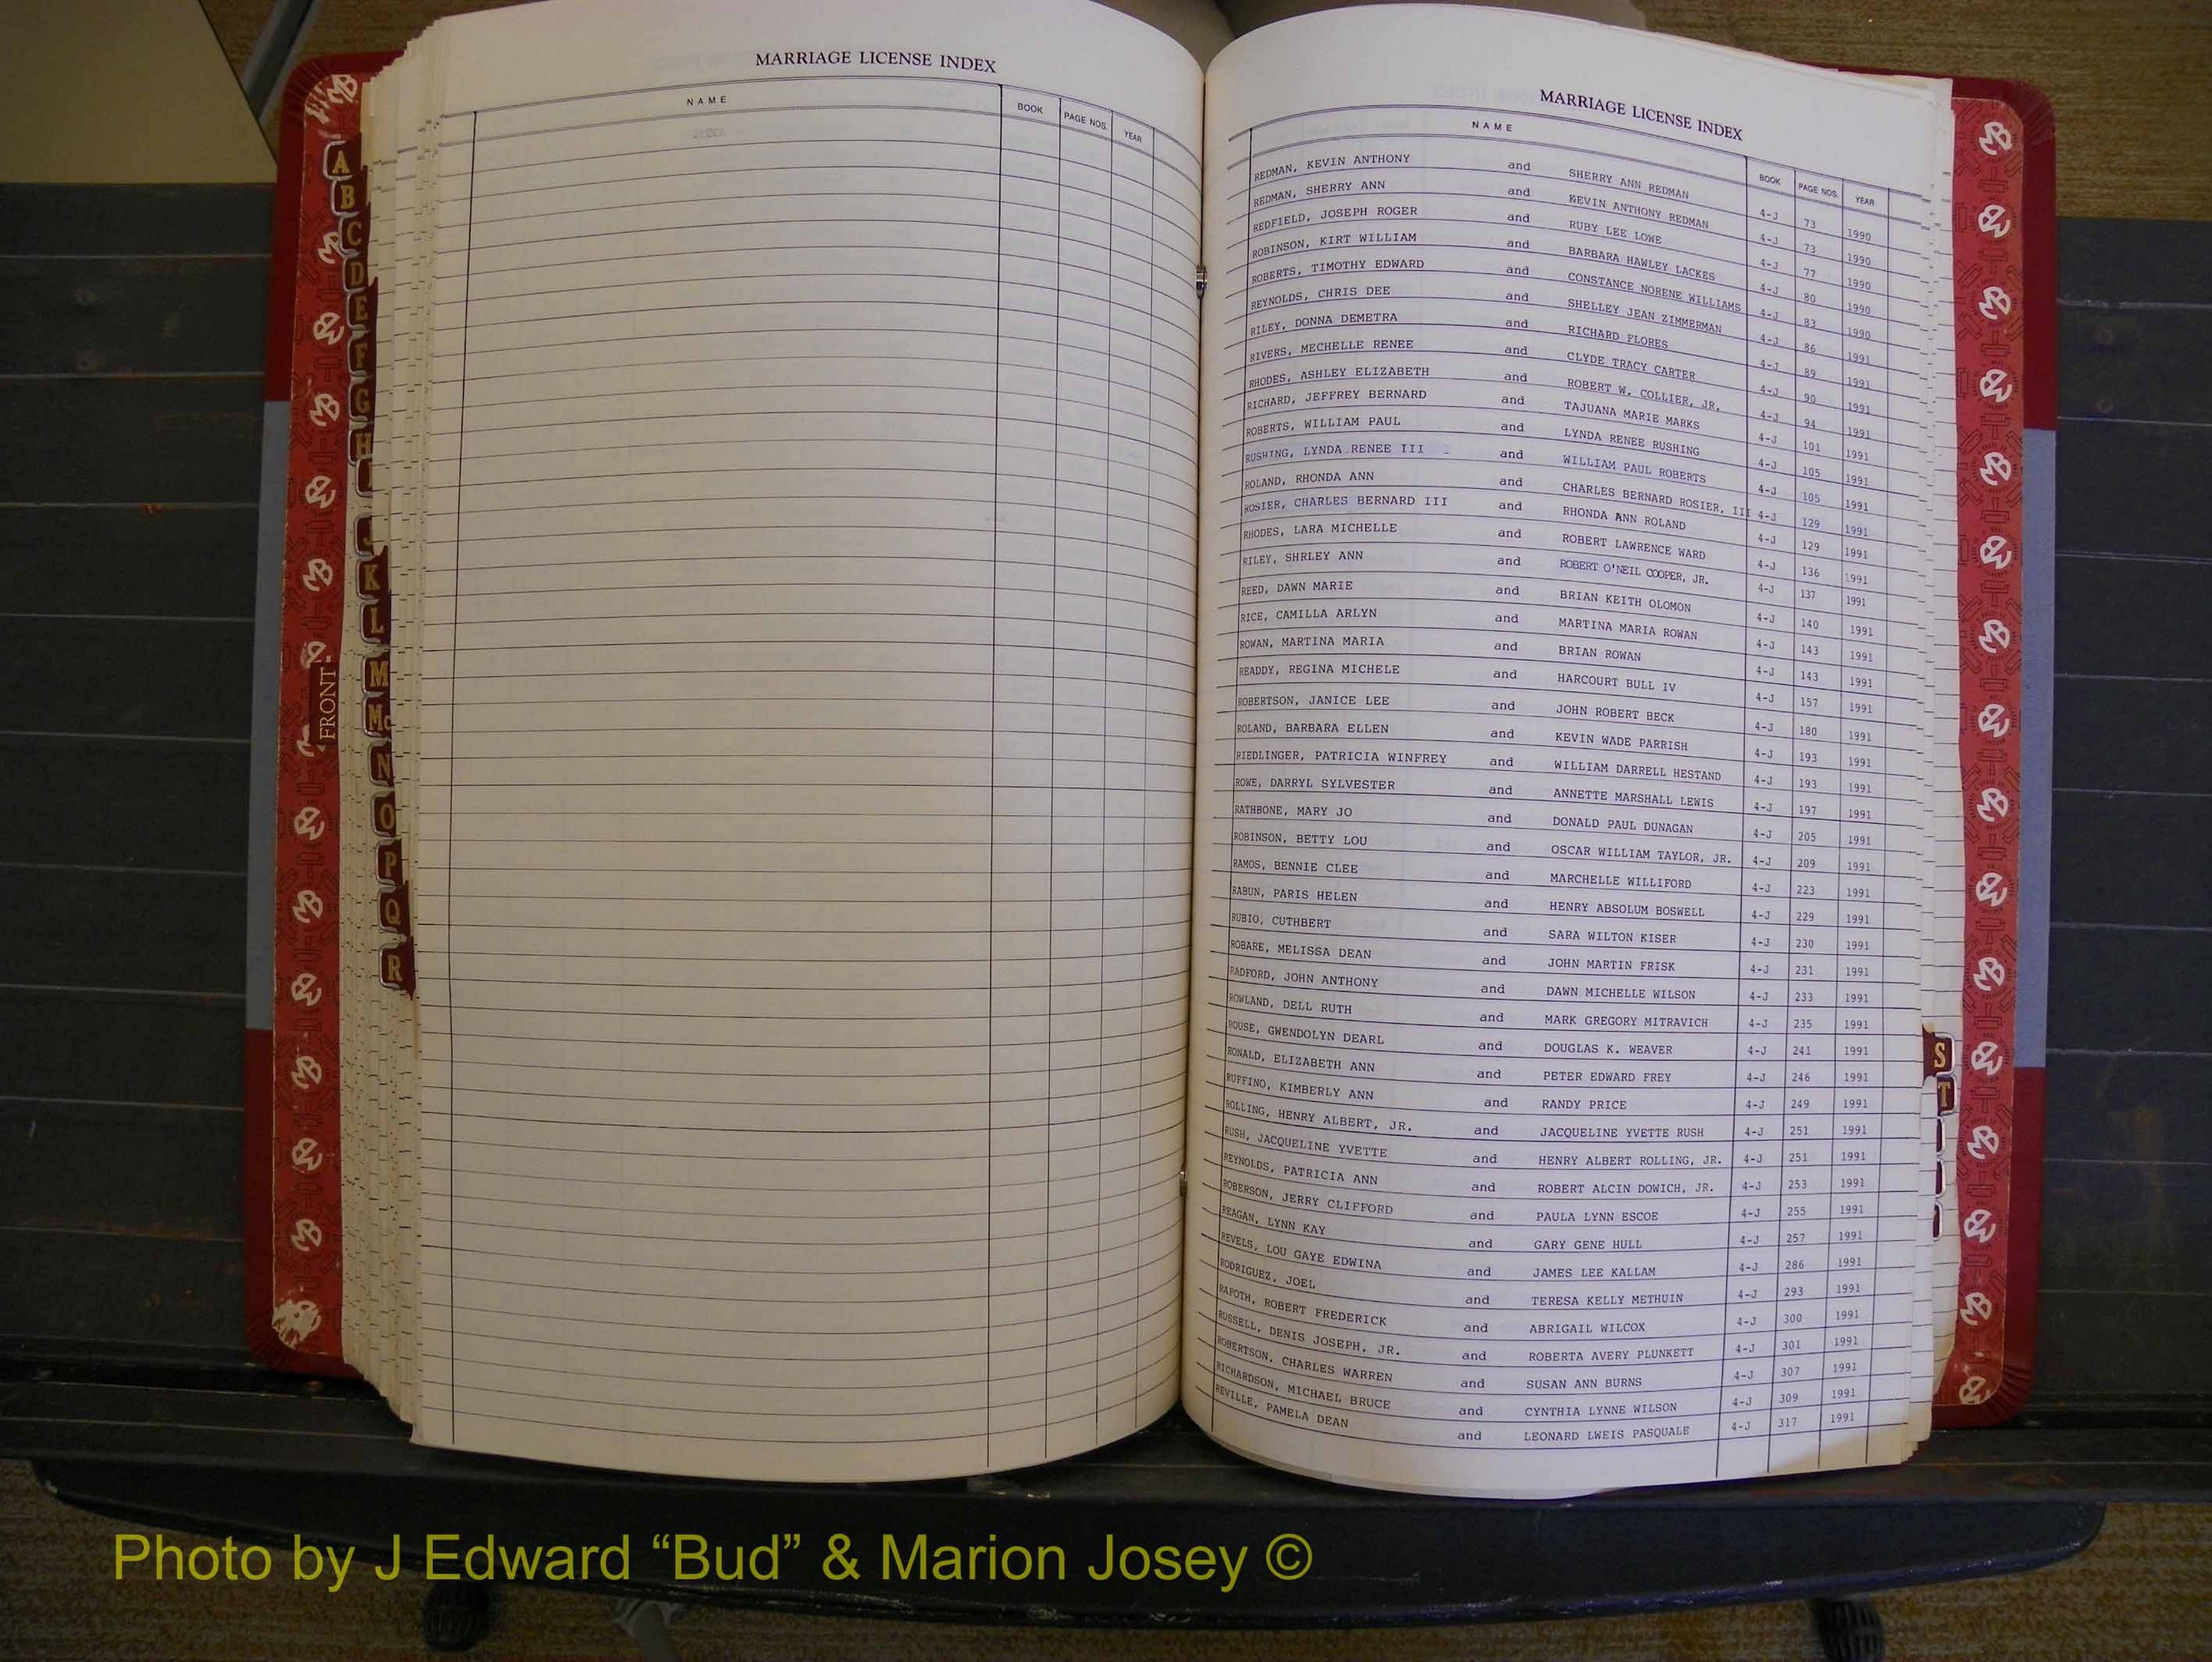 MARRIAGE LICENSE INDEX
NAME BOOK PAGE NOS. YEAR
MARRIAGE LICENSE INDEX
NAME BOOK PAGE NOS. YEAR
REDMAN, KEVIN ANTHONY and SHERRY ANN REDMAN 4-J 73 1990
REDMAN, SHERRY ANN and KEVIN ANTHONY REDMAN 4-J 73 1990
REDFIELD, JOSEPH ROGER and RUBY LEE LOWE 4-J 77 1990
ROBINSON, KIRT WILLIAM and BARBARA HAWLEY LACKES 4-J 80 1990
ROBERTS, TIMOTHY EDWARD and CONSTANCE NORENE WILLIAMS 4-J 83 1990
REYNOLDS, CHRIS DEE and SHELLEY JEAN ZIMMERMAN 4-J 86 1991
RILEY, DONNA DEMETRA and RICHARD FLORES 4-J 89 1991
RIVERS, MECHELLE RENEE and CLYDE TRACY CARTER 4-J 90 1991
RHODES, ASHLEY ELIZABETH and ROBERT W. COLLIER, JR. 4-J 94 1991
RICHARD, JEFFREY BERNARD and TAJUANA MARIE MARKS 4-J 101 1991
ROBERTS, WILLIAM PAUL and LYNDA RENEE RUSHING 4-J 105 1991
RUSHING, LYNDA RENEE III and WILLIAM PAUL ROBERTS 4-J 105 1991
ROLAND, RHONDA ANN and CHARLES BERNARD ROSIER, III 4-J 129 1991
ROSIER, CHARLES BERNARD III and RHONDA ANN ROLAND 4-J 129 1991
RHODES, LARA MICHELLE and ROBERT LAWRENCE WARD 4-J 136 1991
RILEY, SHRLEY ANN and ROBERT O'NEIL COOPER, JR. 4-J 137 1991
REED, DAWN MARIE and BRIAN KEITH OLOMON 4-J 140 1991
RICE, CAMILLA ARLYN and MARTINA MARIA ROWAN 4-J 143 1991
ROWAN, MARTINA MARIA and BRIAN ROWAN 4-J 143 1991
READDY, REGINA MICHELE and HARCOURT BULL IV 4-J 157 1991
ROBERTSON, JANICE LEE and JOHN ROBERT BECK 4-J 180 1991
ROLAND, BARBARA ELLEN and KEVIN WADE PARRISH 4-J 193 1991
RIEDLINGER, PATRICIA WINFREY and WILLIAM DARRELL HESTAND 4-J 193 1991
ROWE, DARRYL SYLVESTER and ANNETTE MARSHALL LEWIS 4-J 197 1991
RATHBONE, MARY JO and DONALD PAUL DUNAGAN 4-J 205 1991
ROBINSON, BETTY LOU and OSCAR WILLIAM TAYLOR, JR. 4-J 209 1991
RAMOS, BENNIE CLEE and MARCHELLE WILLIFORD 4-J 223 1991
RABUN, PARIS HELEN and HENRY ABSOLUM BOSWELL 4-J 229 1991
RUBIO, CUTHBERT and SARA WILTON KISER 4-J 230 1991
ROBARE, MELISSA DEAN and JOHN MARTIN FRISK 4-J 231 1991
RADFORD, JOHN ANTHONY and DAWN MICHELLE WILSON 4-J 233 1991
ROWLAND, DELL RUTH and MARK GREGORY MITRAVICH 4-J 235 1991
ROUSE, GWENDOLYN DEARL and DOUGLAS K. WEAVER 4-J 241 1991
RONALD, ELIZABETH ANN and PETER EDWARD FREY 4-J 246 1991
RUFFINO, KIMBERLY ANN and RANDY PRICE 4-J 249 1991
ROLLING, HENRY ALBERT, JR. and JACQUELINE YVETTE RUSH 4-J 251 1991
RUSH, JACQUELINE YVETTE and HENRY ALBERT ROLLING, JR. 4-J 251 1991
REYNOLDS, PATRICIA ANN and ROBERT ALCIN DOWICH, JR. 4-J 253 1991
ROBERSON, JERRY CLIFFORD and PAULA LYNN ESCOE 4-J 255 1991
REAGAN, LYNN KAY and GARY GENE HULL 4-J 257 1991
REVELS, LOU GAYE EDWINA and JAMES LEE KALLAM 4-J 286 1991
RODRIGUEZ, JOEL and TERESA KELLY METHUIN 4-J 293 1991
RAFOTH, ROBERT FREDERICK and ABRIGAIL WILCOX 4-J 300 1991
RUSSELL, DENIS JOSEPH, JR. and ROBERTA AVERY PLUNKETT 4-J 301 1991
ROBERTSON, CHARLES WARREN and SUSAN ANN BURNS 4-J 307 1991
RICHARDSON, MICHAEL BRUCE and CYNTHIA LYNNE WILSON 4-J 309 1991
REVILLE, PAMELA DEAN and LEONARD LWEIS PASQUALE 4-J 317 1991
A
B
C
D
E
F
G
H
I
J
K
L
M
Mc
N
O
P
Q
R
FRONT
S
T
Photo by J Edward “Bud” & Marion Josey ©